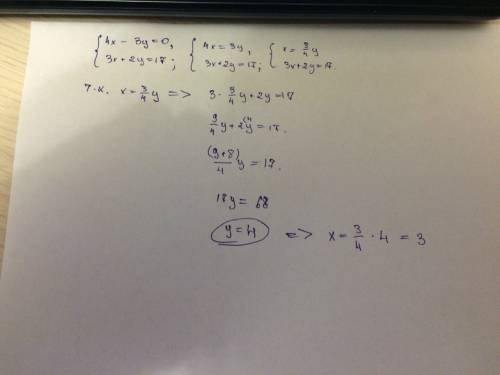 {4x − 3y = 0, {4x = 3y, {x = 3/4 y
{3x + 2y = 17; {3x + 2y = 17; {3x + 2y = 17.
Т.к. x = 3/4 y => 3 · 3/4 y + 2y = 17
9/4 y + 2y(4 = 17.
(9+8)/4 y = 17.
17y = 68
y = 4 => x = 3/4 · 4 = 3